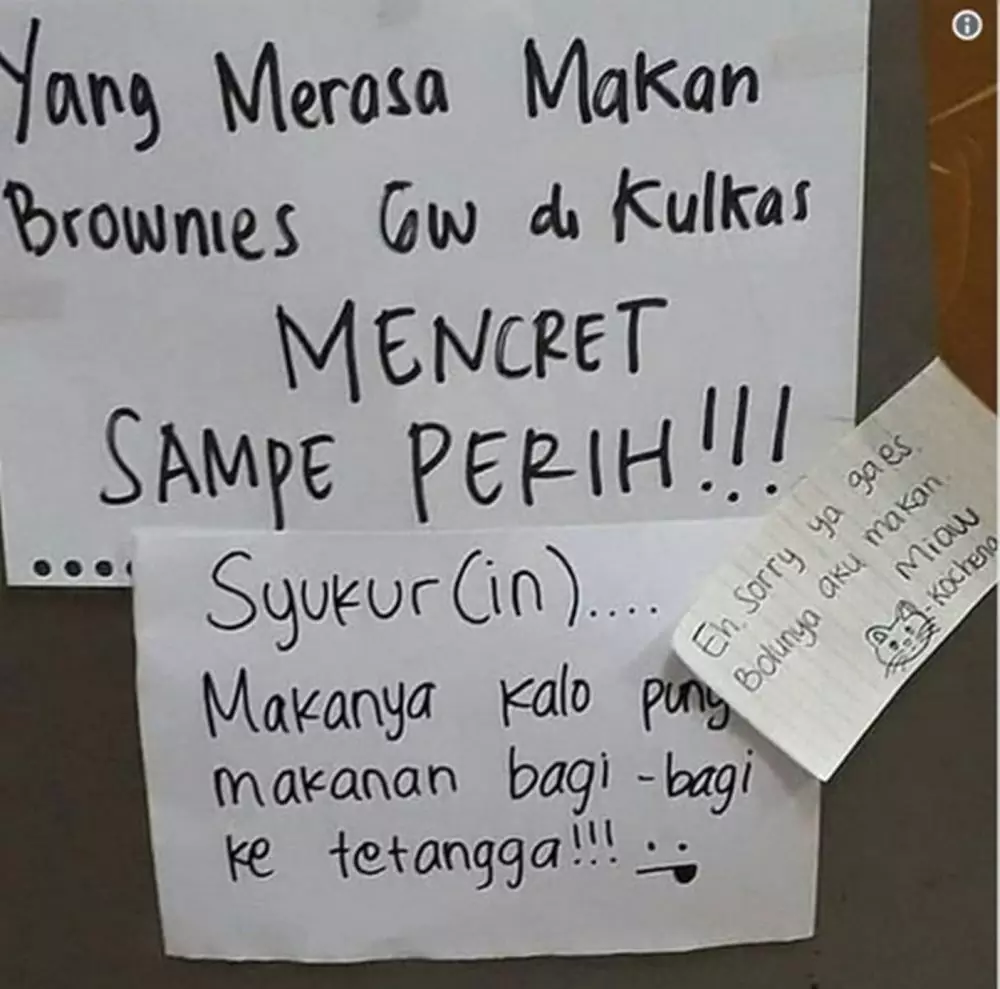 Yang Merasa Makan
Brownies Gw di Kulkas
MENCRET
SAMPE PERIH!!!
....
Syukur(in)....
Makanya kalo puny
makanan bagi-bagi
ke tetangga!!!
Eh, Sorry ya gaes.
Bolunya aku makan.
Miaw
-Kocheng